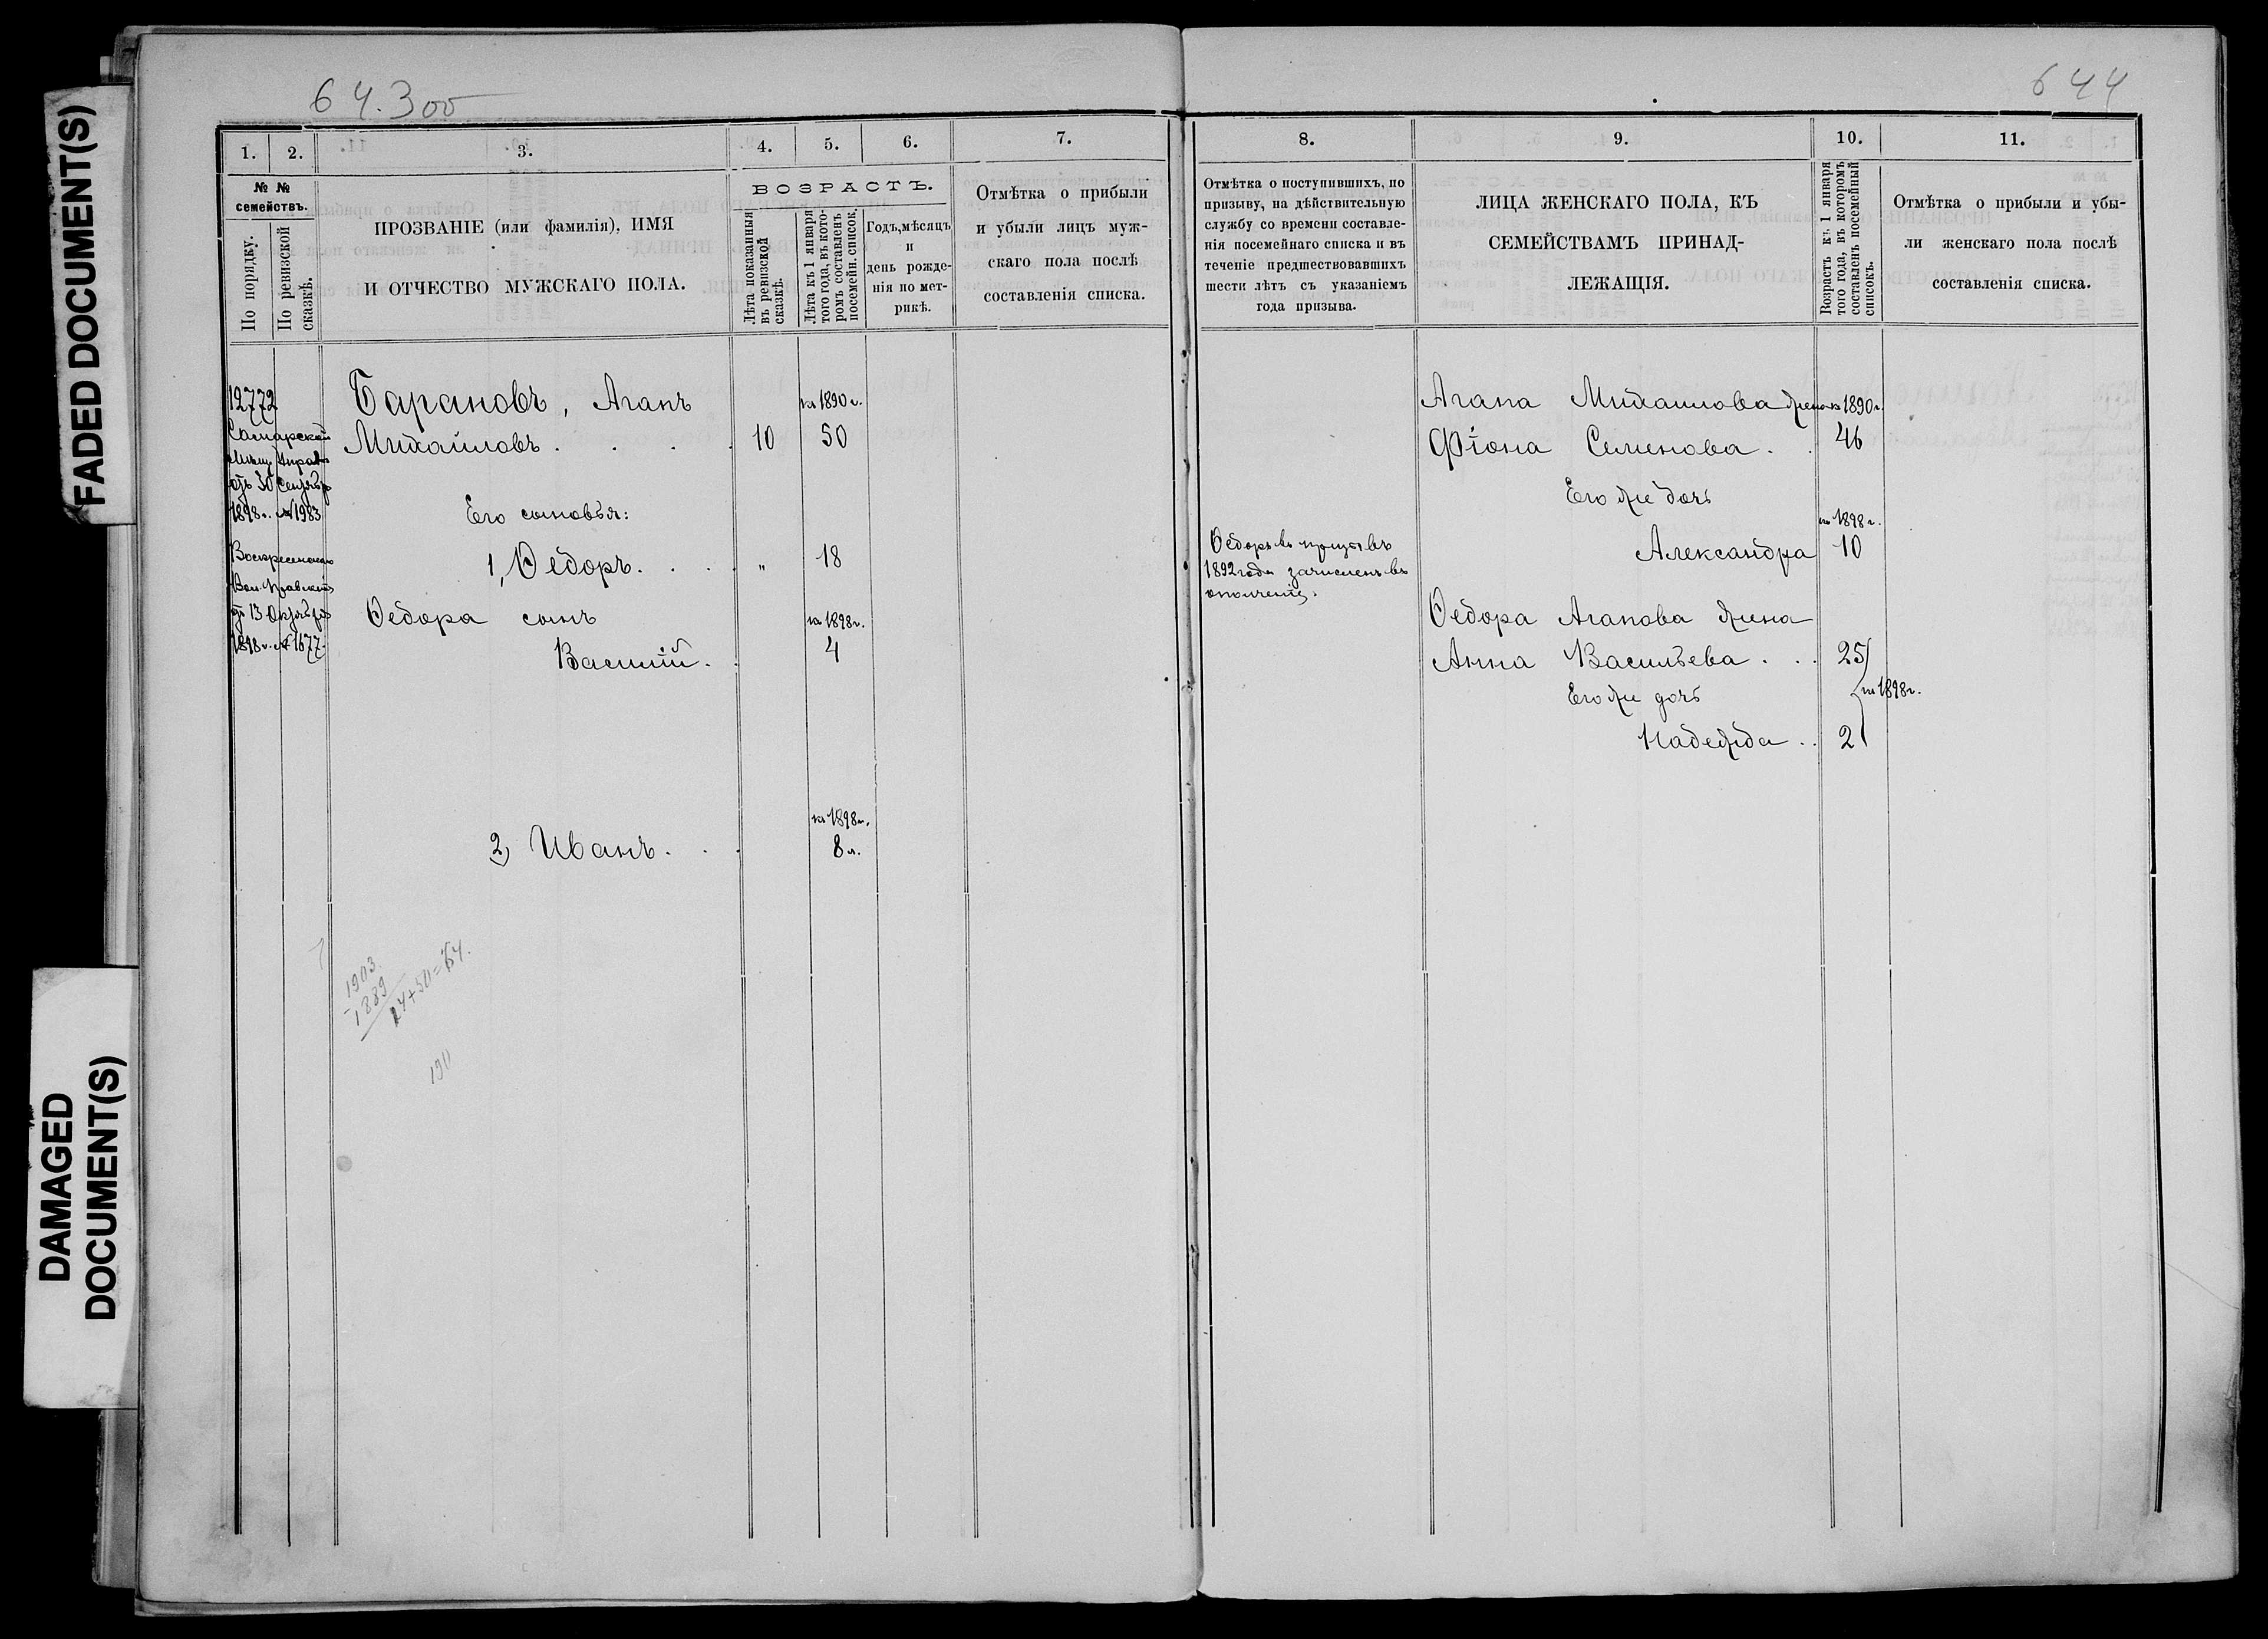 FADED DOCUMENT(S)
DAMAGED
DOCUMENT(S)
64.300
644
1.
2.
3.
4.
5.
6.
7.
8.
9.
10.
11.
№ №
семействъ.
По порядку.
По ревизской
сказкѣ.
ПРОЗВАНІЕ (или фамилія), ИМЯ
И ОТЧЕСТВО МУЖСКАГО ПОЛА.
ВОЗРАСТЪ.
Лѣта показанныя
въ ревизской
сказкѣ.
Лѣта къ 1 января
того года, въ кото-
ромъ составленъ
посемейн. список.
Годъ, мѣсяцъ
и
день рожде-
нія по мет-
рикѣ.
Отмѣтка о прибыли
и убыли лицъ муж-
скаго пола послѣ
составленія списка.
Отмѣтка о поступившихъ, по
призыву, на дѣйствительную
службу со времени составле-
нія посемейнаго списка и въ
теченіе предшествовавшихъ
шести лѣтъ съ указаніемъ
года призыва.
ЛИЦА ЖЕНСКАГО ПОЛА, КЪ
СЕМЕЙСТВАМЪ ПРИНАД-
ЛЕЖАЩІЯ.
Возрастъ къ 1 января
того года, въ которомъ
составленъ посемейный
списокъ.
Отмѣтка о прибыли и убы-
ли женскаго пола послѣ
составленія списка.
12772
Самарской
Мѣщ. Управы
отъ 30 Сентября
1898 г. № 1983
Воскресенскаго
Вол. Правленія
отъ 13 Октября
1898 г. № 1677.
Барановъ, Агапъ
Михайловъ . . . . 10
къ 1890 г.
50
Его сыновья:
1, Ѳедоръ. . . . „ 18
Ѳедора сынъ
къ 1898 г.
Василій. . 4
къ 1898 г.
2, Иванъ. . . 8 л.
1903.
-1889
14+50=64.
190
Ѳедоръ въ призывъ
1892 года зачисленъ въ
ополченіе.
Агапа Михайлова жена къ 1890 г.
Ѳіона Семенова. . 46
Его же дочь
къ 1898 г.
Александра 10
Ѳедора Агапова жена
Анна Васильева . . . 25
Его же дочь
къ 1898 г.
Надежда . . 2